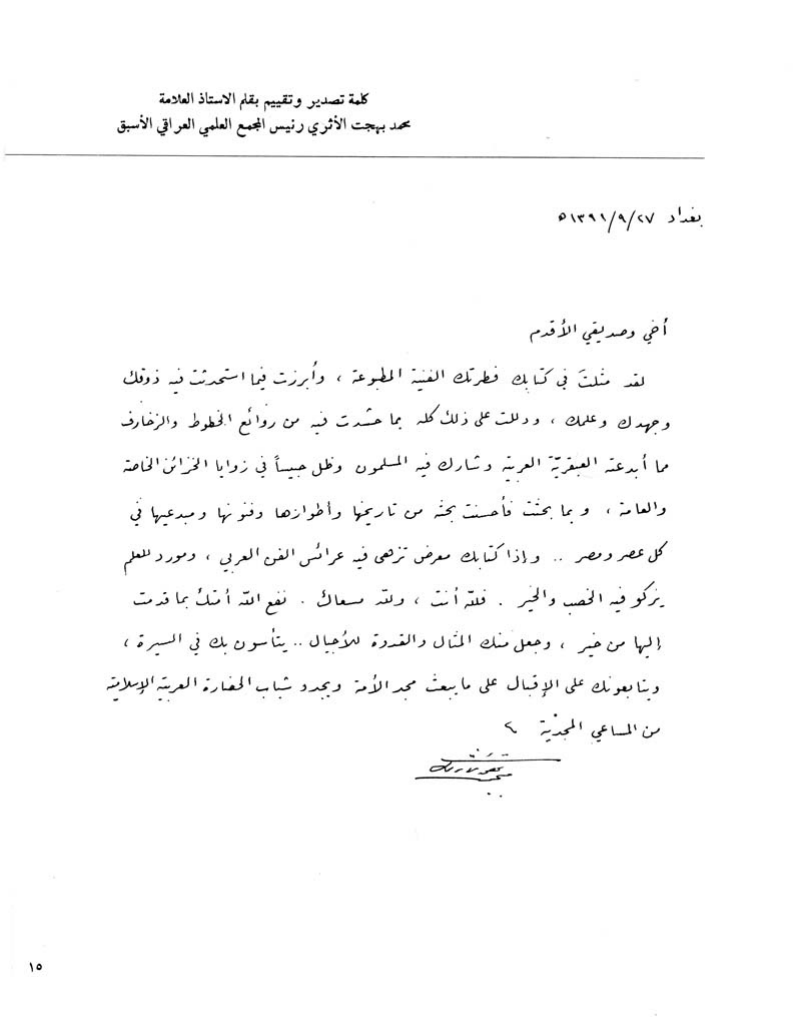 كلمة تصدير وتقييم بقلم الاستاذ العلامة
محمد بهجت الأثري رئيس المجمع العلمي العراقي الأسبق
بغداد ٢٧/٩/١٣٩١ه
أخي وصديقي الأقدم
لقد مثلتَ في كتابك فطرتك الفنية المطبوعة ، وأبرزت فيما استحدثت فيه ذوقك
وجهدك وعلمك ، ودللت على ذلك كله بما حشدت فيه من روائع الخطوط والزخارف
مما أبدعته العبقريّة العربية وشارك فيه المسلمون وظل حبيساً في زوايا الخزائن الخاصة
والعامة ، وبما بحثت فأحسنت بحثه من تاريخها وأطوارها وفنونها ومبدعيها في
كل عصر ومصر .. وإذا كتابك معرض تزهى فيه عرائس الفن العربي ، ومورد للعلم
يزكو فيه الخصب والخير . فلله أنت ، ولله مسعاك . نفع الله أمتك بما قدمت
إليها من خير ، وجعل منك المثال والقدوة للأجيال .. يتأسون بك في السيرة ،
ويتابعونك على الإقبال على ما يبعث مجد الأمة ويجدد شباب الحضارة العربية الإسلامية
من المساعي المجديّة
١٥